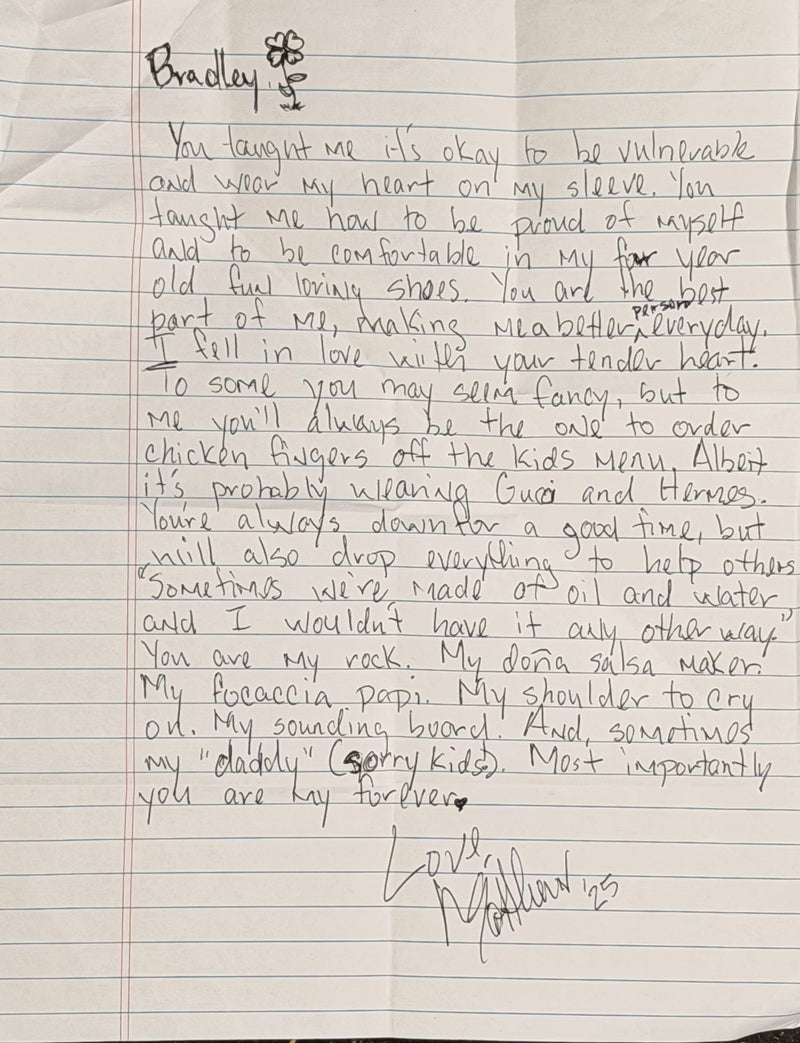 Bradley,
You taught me it's okay to be vulnerable
and wear my heart on my sleeve. You
taught me how to be proud of myself
and to be comfortable in my four year
old fun loving shoes. You are the best
part of me, making me a better person everyday.
I fell in love with your tender heart.
To some you may seem fancy, but to
me you'll always be the one to order
chicken fingers off the kids menu. Albeit
it's probably wearing Gucci and Hermes.
You're always down for a good time, but
will also drop everything to help others
"Sometimes we're made of oil and water
and I wouldn't have it any other way."
You are my rock. My doña salsa maker.
My focaccia papi. My shoulder to cry
on. My sounding board. And, sometimes
my "daddy" (sorry kids). Most importantly
you are my forever
Love,
Matthew '25